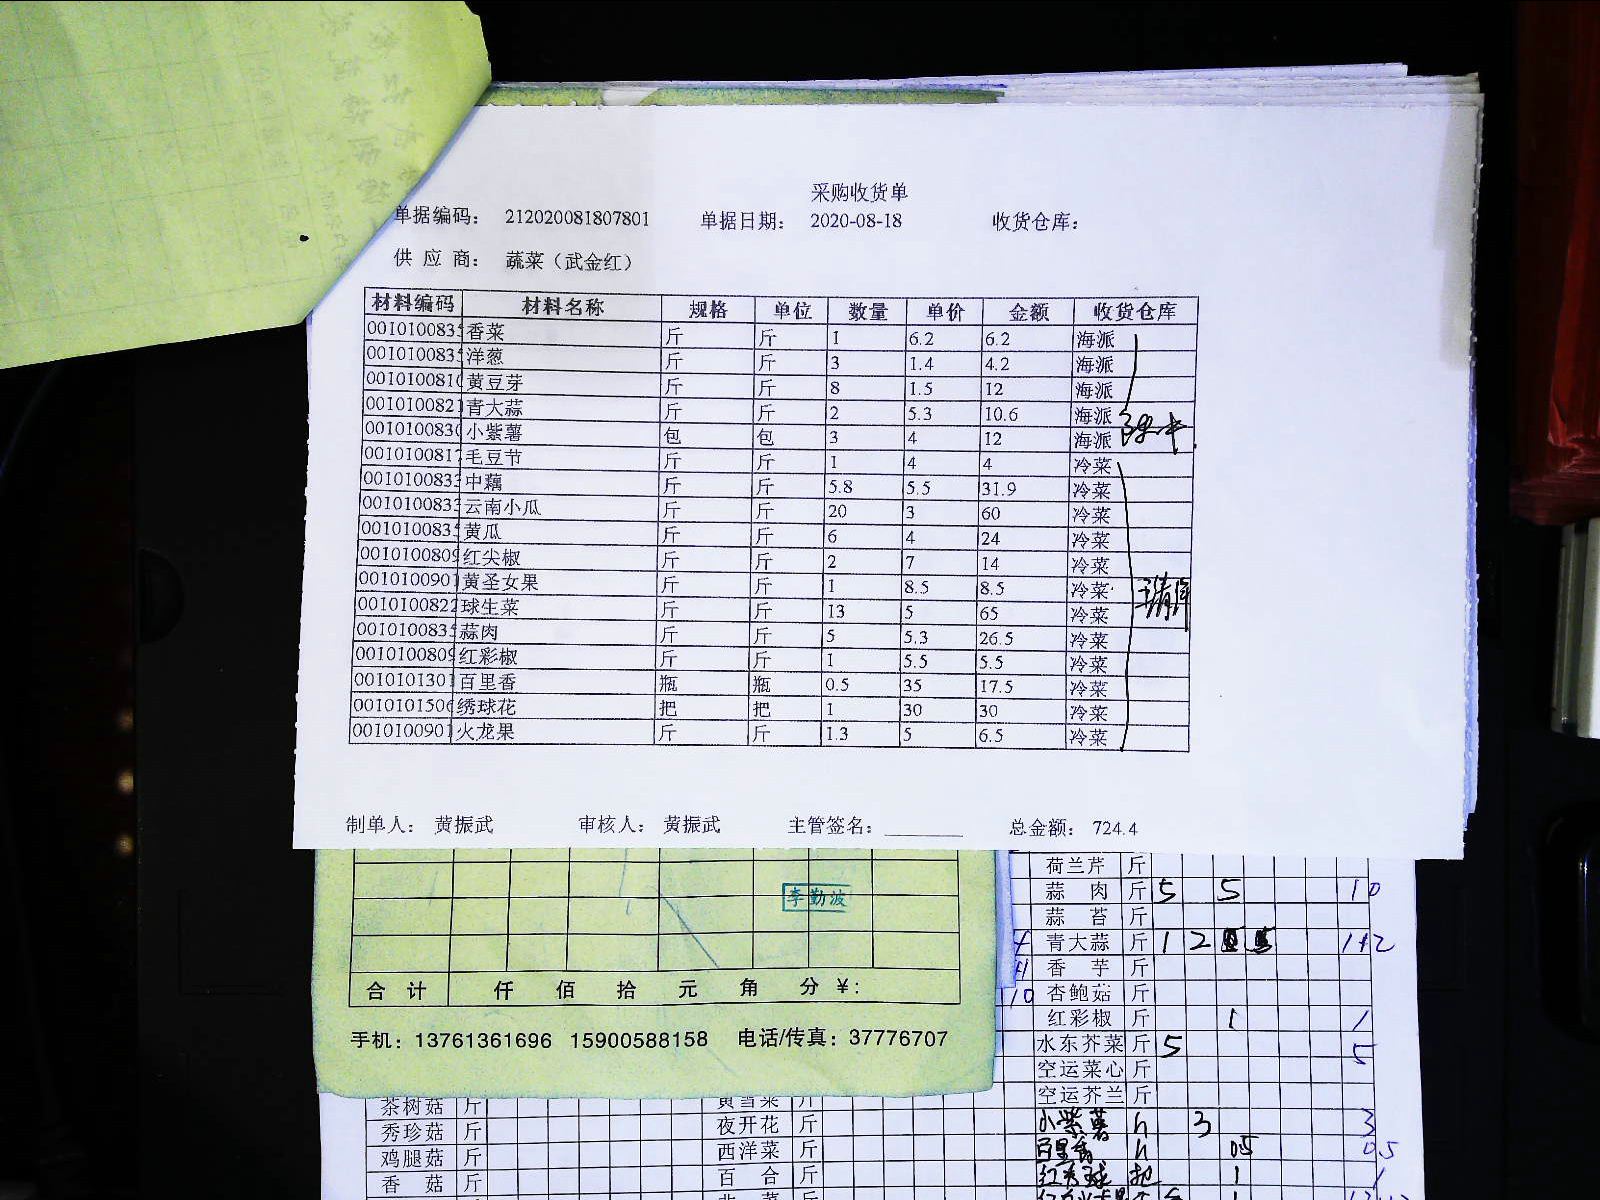 采购收货单
单据编码： 212020081807801 单据日期： 2020-08-18 收货仓库：
供 应 商： 蔬菜（武金红）
材料编码 材料名称 规格 单位 数量 单价 金额 收货仓库
001010083 香菜 斤 斤 1 6.2 6.2 海派
001010083 洋葱 斤 斤 3 1.4 4.2 海派
001010081 黄豆芽 斤 斤 8 1.5 12 海派
001010082 青大蒜 斤 斤 2 5.3 10.6 海派
001010083 小紫薯 包 包 3 4 12 海派
001010081 毛豆节 斤 斤 1 4 4 冷菜
001010083 中藕 斤 斤 5.8 5.5 31.9 冷菜
001010083 云南小瓜 斤 斤 20 3 60 冷菜
001010083 黄瓜 斤 斤 6 4 24 冷菜
001010080 红尖椒 斤 斤 2 7 14 冷菜
001010090 黄圣女果 斤 斤 1 8.5 8.5 冷菜
001010082 球生菜 斤 斤 13 5 65 冷菜
001010083 蒜肉 斤 斤 5 5.3 26.5 冷菜
001010080 红彩椒 斤 斤 1 5.5 5.5 冷菜
001010130 百里香 瓶 瓶 0.5 35 17.5 冷菜
001010150 绣球花 把 把 1 30 30 冷菜
001010090 火龙果 斤 斤 1.3 5 6.5 冷菜
制单人： 黄振武 审核人： 黄振武 主管签名： 总金额： 724.4
李勤波
合 计 仟 佰 拾 元 角 分 ¥:
手机：13761361696 15900588158 电话/传真：37776707
荷兰芹 斤
蒜 肉 斤 5 5 10
蒜 苔 斤
青大蒜 斤 1 2 1+2
香 芋 斤
杏鲍菇 斤
红彩椒 斤 1 1
水东芥菜 斤 5 5
空运菜心 斤
空运芥兰 斤
茶树菇 斤 黄雪菜 斤
秀珍菇 斤 夜开花 斤 小紫薯 3 3
鸡腿菇 斤 西洋菜 斤 百里香 05 05
香 菇 斤 百 合 斤 1 1